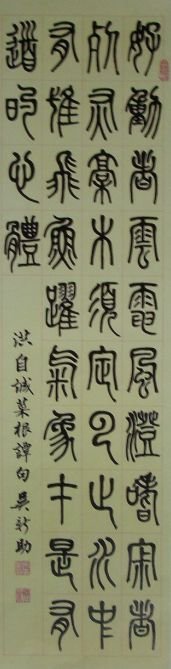 好動者雲電風燈嗜寂者
死灰槁木須定云止水中
有鳶飛魚躍氣象才是有
道的心體
洪自誠菜根譚句 吳新助